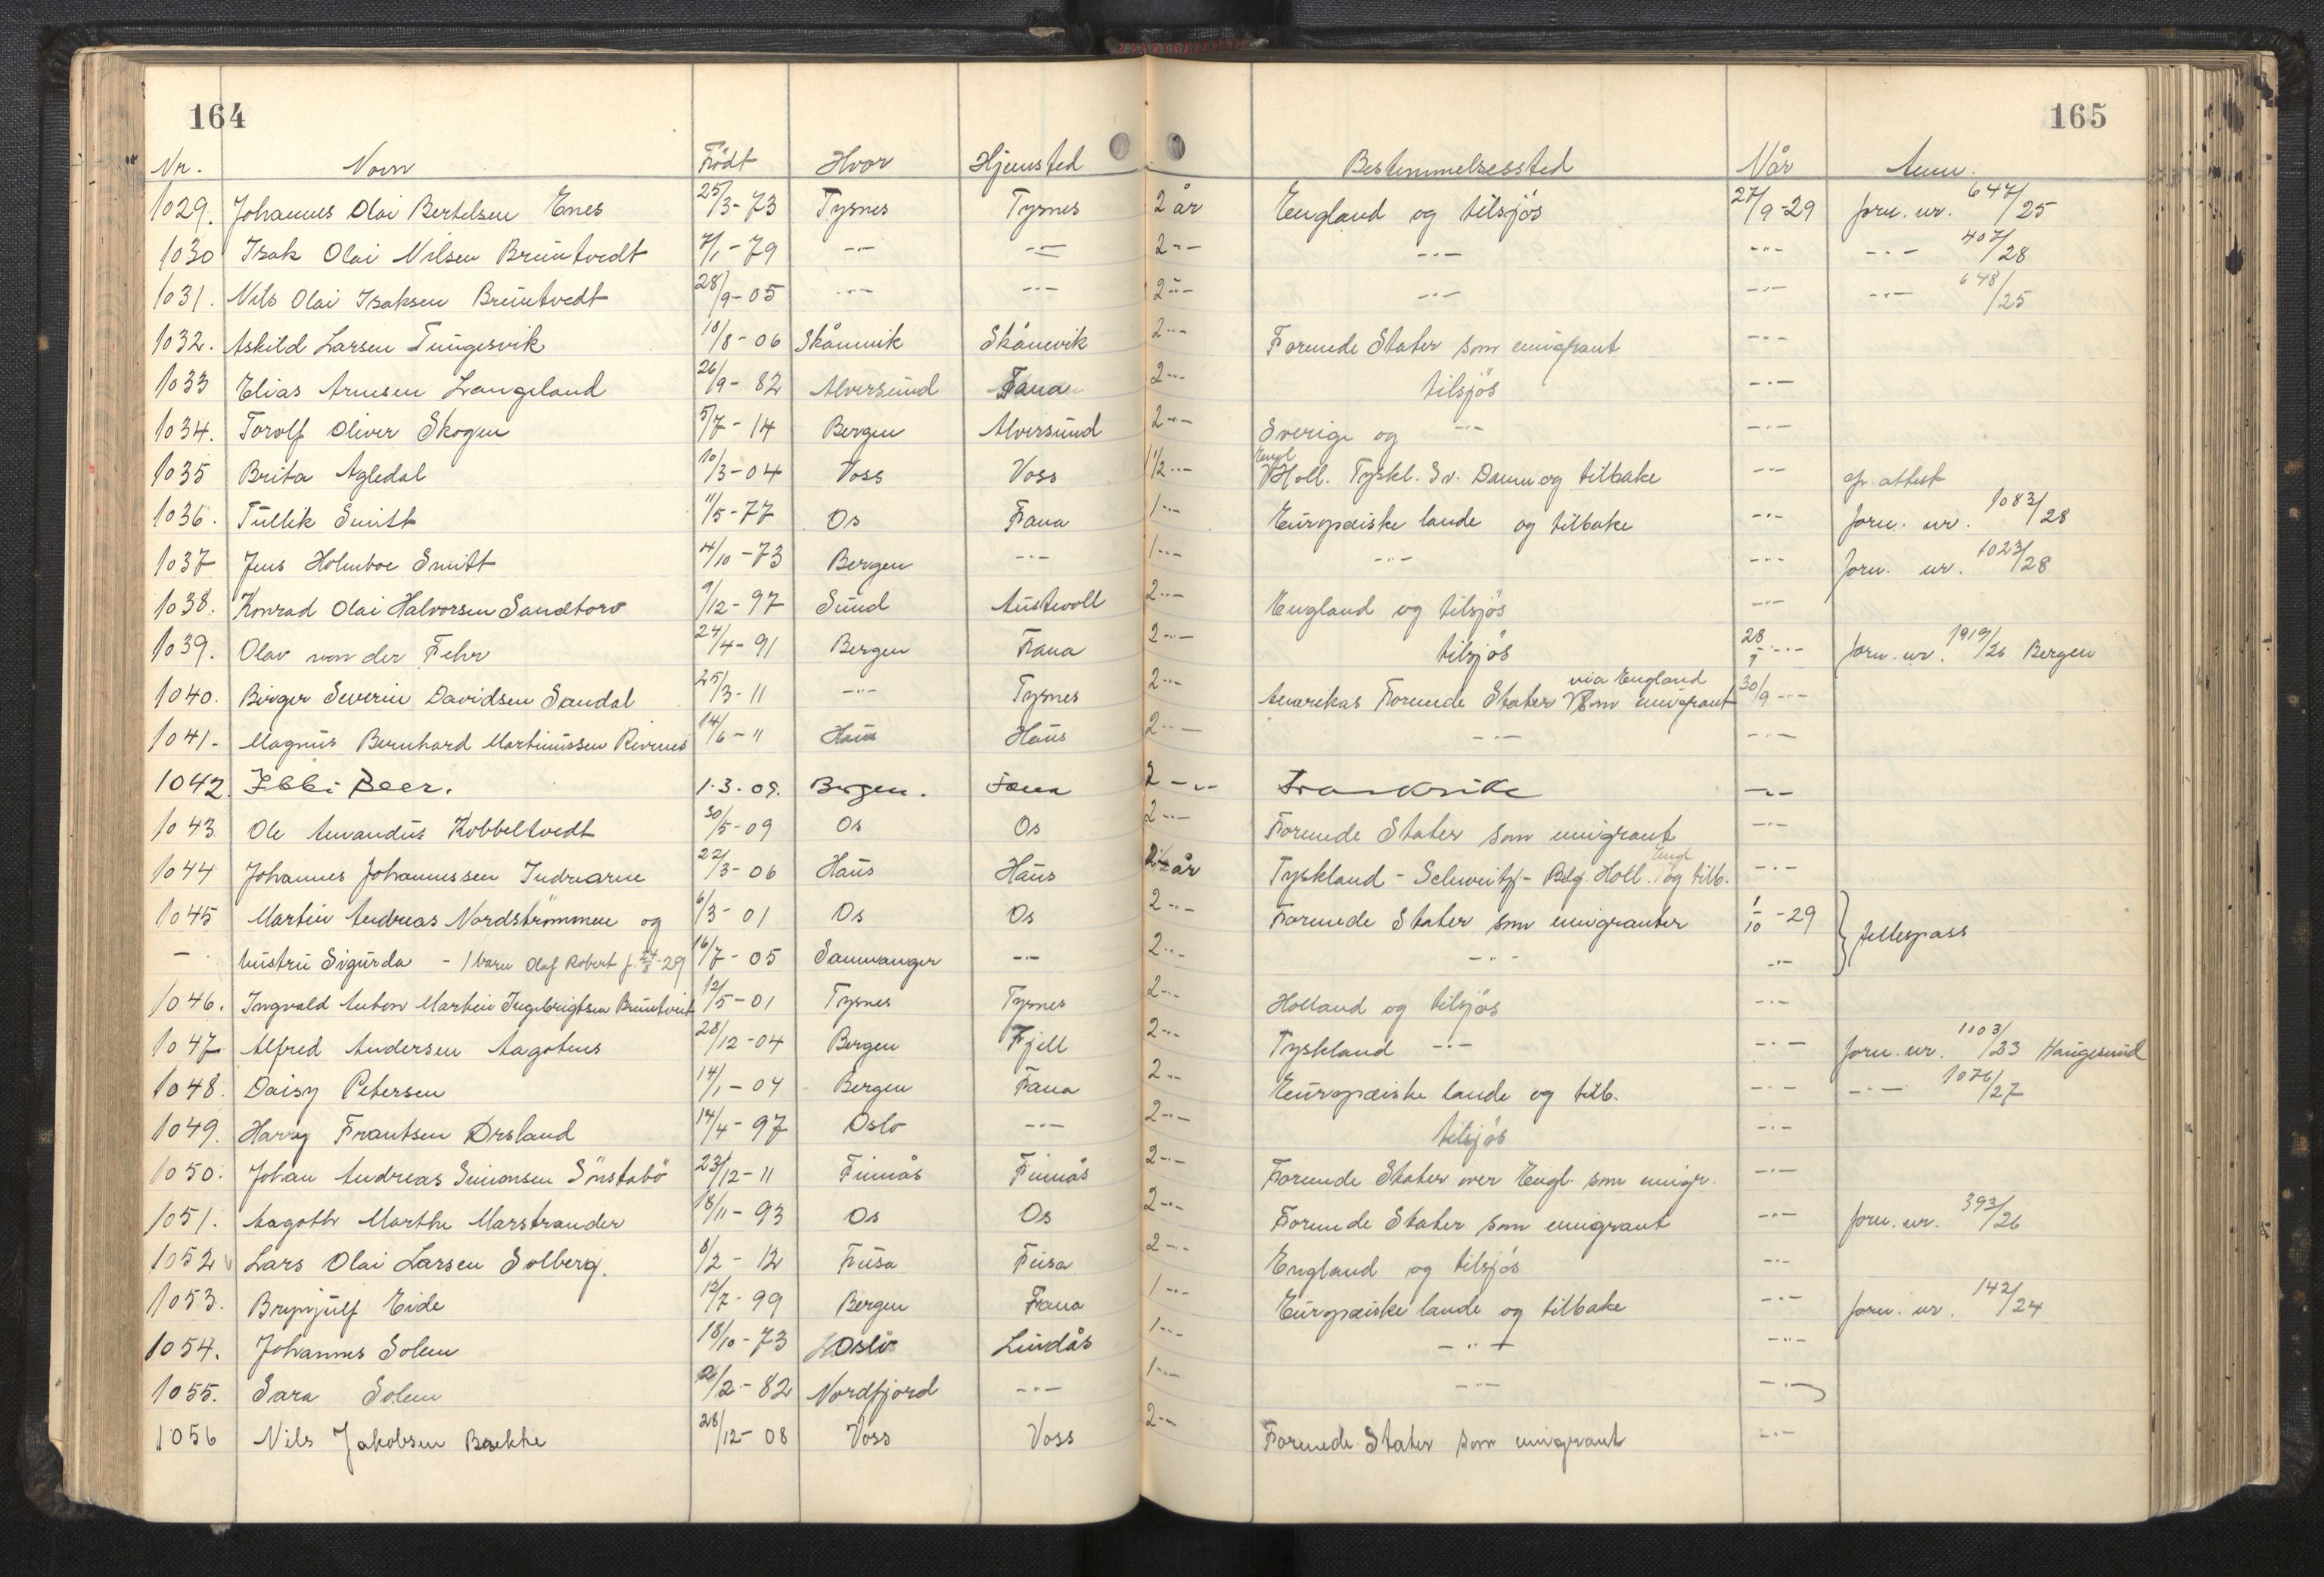 164 165
Nr. Navn Födt Hvor Hjemsted Bestemmelsessted Når Anm.
1029. Johannes Olai Bertelsen Enes 25/3-73 Tysnes Tysnes 2 år England og tilsjös 27/9-29 forn. nr. 647/25
1030 Isak Olai Nilsen Bruntvedt 7/1-79 -"- -"- 2 -"- -"- -"- -"- 407/28
1031. Nils Olai Isaksen Bruntvedt 28/9-05 -"- -"- 2 -"- -"- -"- -"- 648/25
1032. Askild Larsen Tungesvik 18/8-06 Skånevik Skånevik 2 -"- Forenede Stater som emigrant -"-
1033 Elias Arnesen Langeland 26/9-82 Alversund Fana 2 -"- tilsjös -"-
1034. Torolf Oliver Skogen 5/7-14 Bergen Alversund 2 -"- Sverige og -"- -"-
1035 Brita Agledal 10/3-04 Voss Voss 1 1/2 -"- Engl Holl. Tyskl. Sv. Danm og tilbake -"- attest
1036. Tullik Smitt 11/5-77 Os Fana 1 -"- Europæiske lande og tilbake -"- forn. nr. 1083/28
1037 Jens Holmboe Smitt 4/10-73 Bergen -"- 1 -"- -"- -"- forn. nr. 1023/28
1038. Konrad Olai Halvorsen Sandtorv 9/12-97 Sund Austevoll 2 -"- England og tilsjös -"-
1039. Olav von der Fehr 24/4-91 Bergen Fana 2 -"- tilsjös 28/9 -"- forn. nr. 1919/26 Bergen
1040. Birger Severin Davidsen Sandal 25/3-11 -"- Tysnes 2 -"- Amerikas Forenede Stater via England som emigrant 30/9 -"-
1041. Magnus Bernhard Martinussen Rivenes 14/6-11 Haus Haus 2 -"- -"- -"-
1042. Ebbi Beer. 1.3.09. Bergen. Fana 2 -"- Frankrike -"-
1043 Ole Amandus Kobbeltvedt 30/5-09 Os Os 2 -"- Forenede Stater som emigrant -"-
1044 Johannes Johannessen Indrearne 22/3-06 Haus Haus år Tyskland - Schweitz - Belg. Holl. Engl og tilb. -"-
1045 Martin Andreas Nordströmmen og 6/3-01 Os Os 2 -"- Forenede Stater som emigranter 1/10-29 fellespass
- hustru Sigurda - 1 barn Olaf Robert f. 24/8-29 16/7-05 Samnanger -"- 2 -"- -"- -"-
1046. Ingvald Anton Martin Ingebrigtsen Bruntveit 12/5-01 Tysnes Tysnes 2 -"- Holland og tilsjös -"-
1047 Alfred Andersen Aagotnes 28/12-04 Bergen Fjell 2 -"- Tyskland -"- -"- forn. nr. 1103/23 Haugesund
1048. Daisy Petersen 14/1-04 Bergen Fana 2 -"- Europæiske lande og tilb. -"- -"- 1076/27
1049. Harry Frantsen Ørsland 14/4-97 Oslo -"- 2 -"- tilsjös -"-
1050. Johan Andreas Simonsen Sönstabö 23/12-11 Finnås Finnås 2 -"- Forenede Stater over Engl. som emigr. -"-
1051. Aagoth Marthe Marstrander 18/11-93 Os Os 2 -"- Forenede Stater som emigrant -"- forn. nr. 393/26
1052 Lars Olai Larsen Solberg. 8/2-12 Fusa Fusa 2 -"- England og tilsjös -"-
1053. Brynjulf Eide 12/7-99 Bergen Fana 1 -"- Europæiske lande og tilbake -"- forn. nr. 142/24
1054. Johannes Solem 18/10-73 Oslo Lindås 1 -"- -"- -"-
1055. Sara Solem /2-82 Nordfjord -"- 1 -"- -"- -"-
1056 Nils Jakobsen Bække 28/12-08 Voss Voss 2 -"- Forenede Stater som emigrant -"-